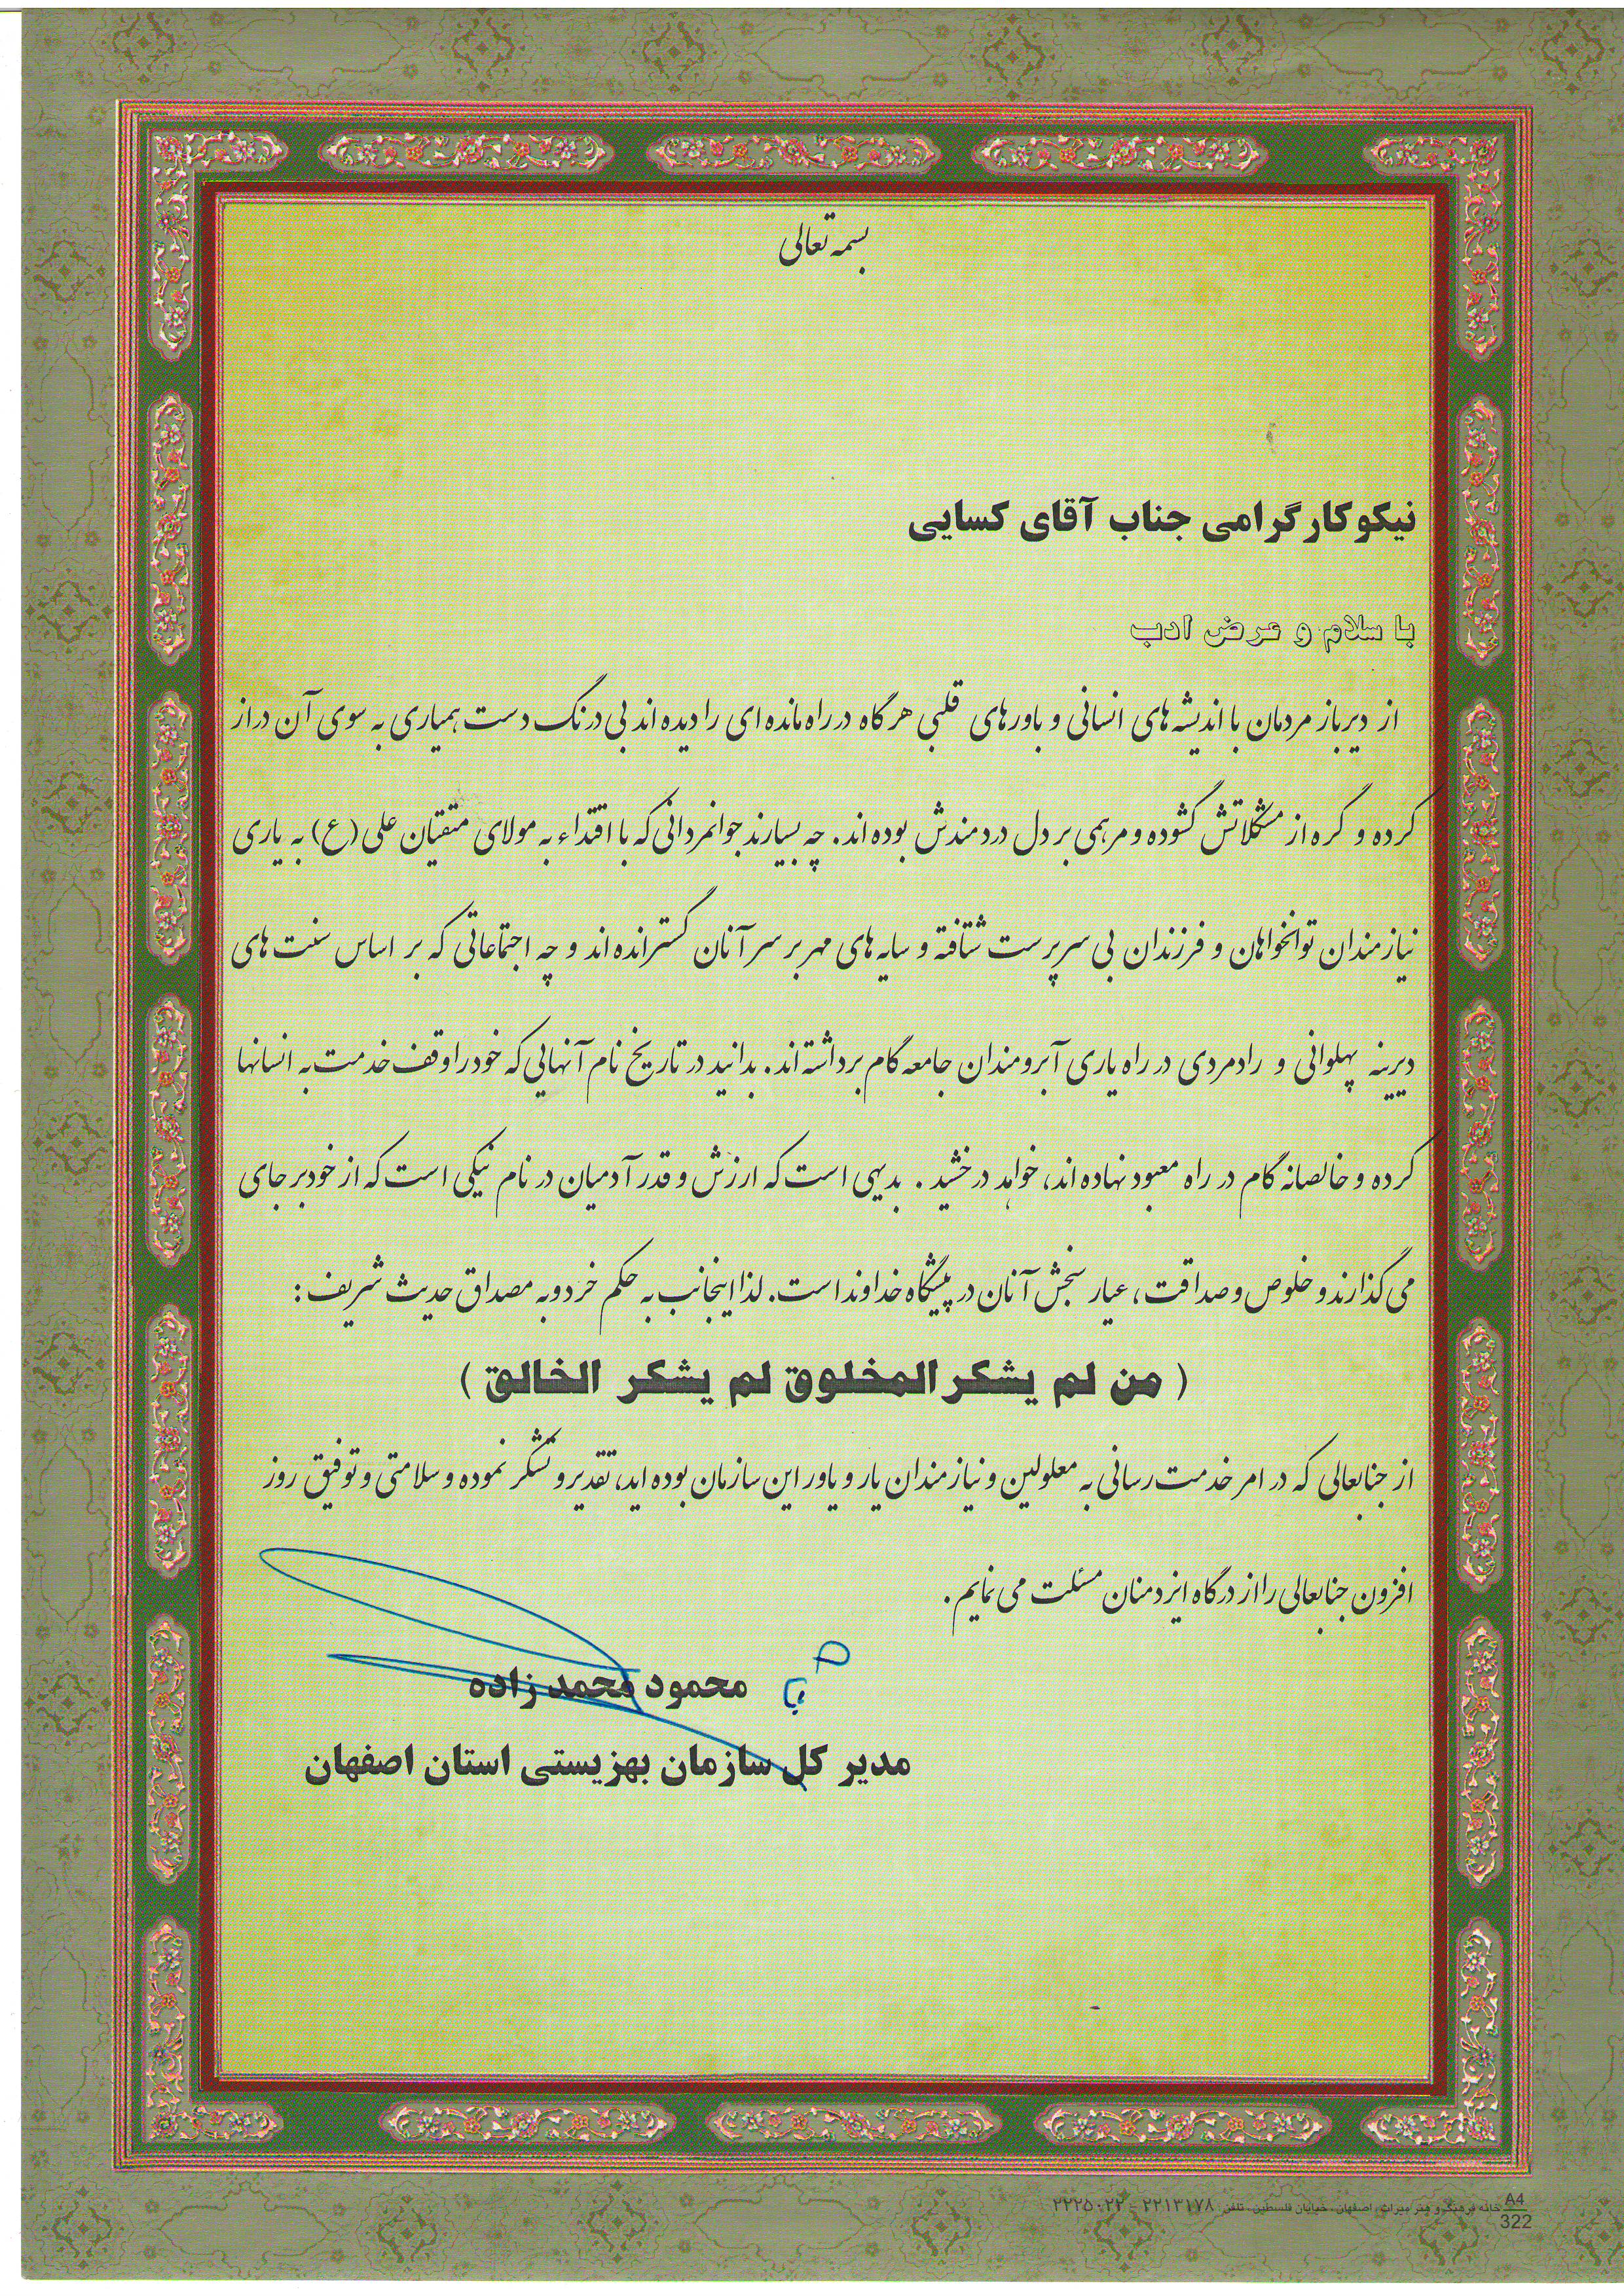 بسمه تعالی
نیکوکار گرامی جناب آقای کسایی
با سلام و عرض ادب
از دیرباز مردمان با اندیشه های انسانی و باورهای قلبی هرگاه در راه مانده ای را دیده اند بی درنگ دست همیاری به سوی آن دراز
کرده و گره از مشکلاتش گشوده و مرهمی بر دل دردمندش بوده اند. چه بسیارند جوانمردانی که با اقتداء به مولای متقیان علی (ع) به یاری
نیازمندان توانخواهان و فرزندان بی سرپرست شتافته و سایه های مهر بر سر آنان گسترانده اند و چه اجتماعاتی که بر اساس سنت های
دیرینه پهلوانی و رادمردی در راه یاری آبرومندان جامعه گام برداشته اند. بدانید در تاریخ نام آنهایی که خود را وقف خدمت به انسانها
کرده و خالصانه گام در راه معبود نهاده اند، خواهد درخشید. بدیهی است که ارزش و قدر آدمیان در نام نیکی است که از خود بر جای
می گذارند و خلوص و صداقت، عیار سنجش آنان در پیشگاه خداوند است. لذا اینجانب به حکم خرد و به مصداق حدیث شریف :
( من لم یشکر المخلوق لم یشکر الخالق )
از جنابعالی که در امر خدمت رسانی به معلولین و نیازمندان یار و یاور این سازمان بوده اید، تقدیر و تشکر نموده و سلامتی و توفیق روز
افزون جنابعالی را از درگاه ایزد منان مسئلت می نمایم.
محمود محمدزاده
مدیر کل سازمان بهزیستی استان اصفهان
A4
322
خانه فرهنگ و هنر میراث، اصفهان، خیابان فلسطین، تلفن ۲۲۱۳۱۷۸ - ۲۲۲۵۰۲۲